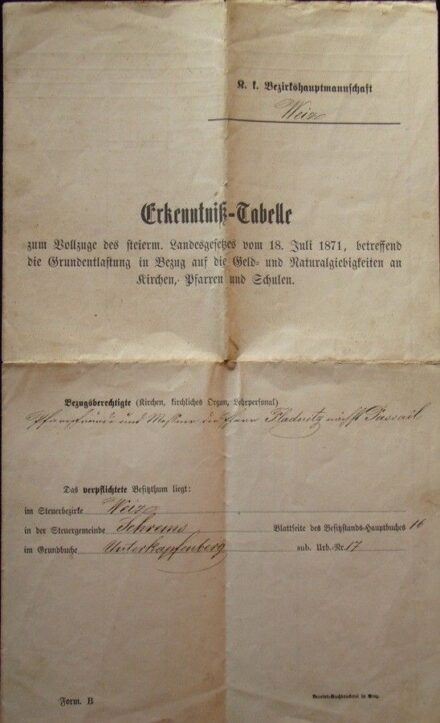 K. k. Bezirkshauptmannschaft
Weiz
Erkenntniß-Tabelle
zum Vollzuge des steierm. Landesgesetzes vom 18. Juli 1871, betreffend
die Grundentlastung in Bezug auf die Geld- und Naturalgiebigkeiten an
Kirchen, Pfarren und Schulen.
Bezugsberechtigte (Kirchen, kirchliches Organ, Lehrpersonal)
Pfarrpfründe und Messner der Pfarre Fladnitz nächst Passail
Das verpflichtete Besitzthum liegt:
im Steuerbezirke Weiz
in der Steuergemeinde Schrems Blattseite des Besitzstands-Hauptbuches 16
im Grundbuche Unterkapfenberg sub. Urb.-Nr. 17
Form. B
Vereins-Buchdruckerei in Graz.